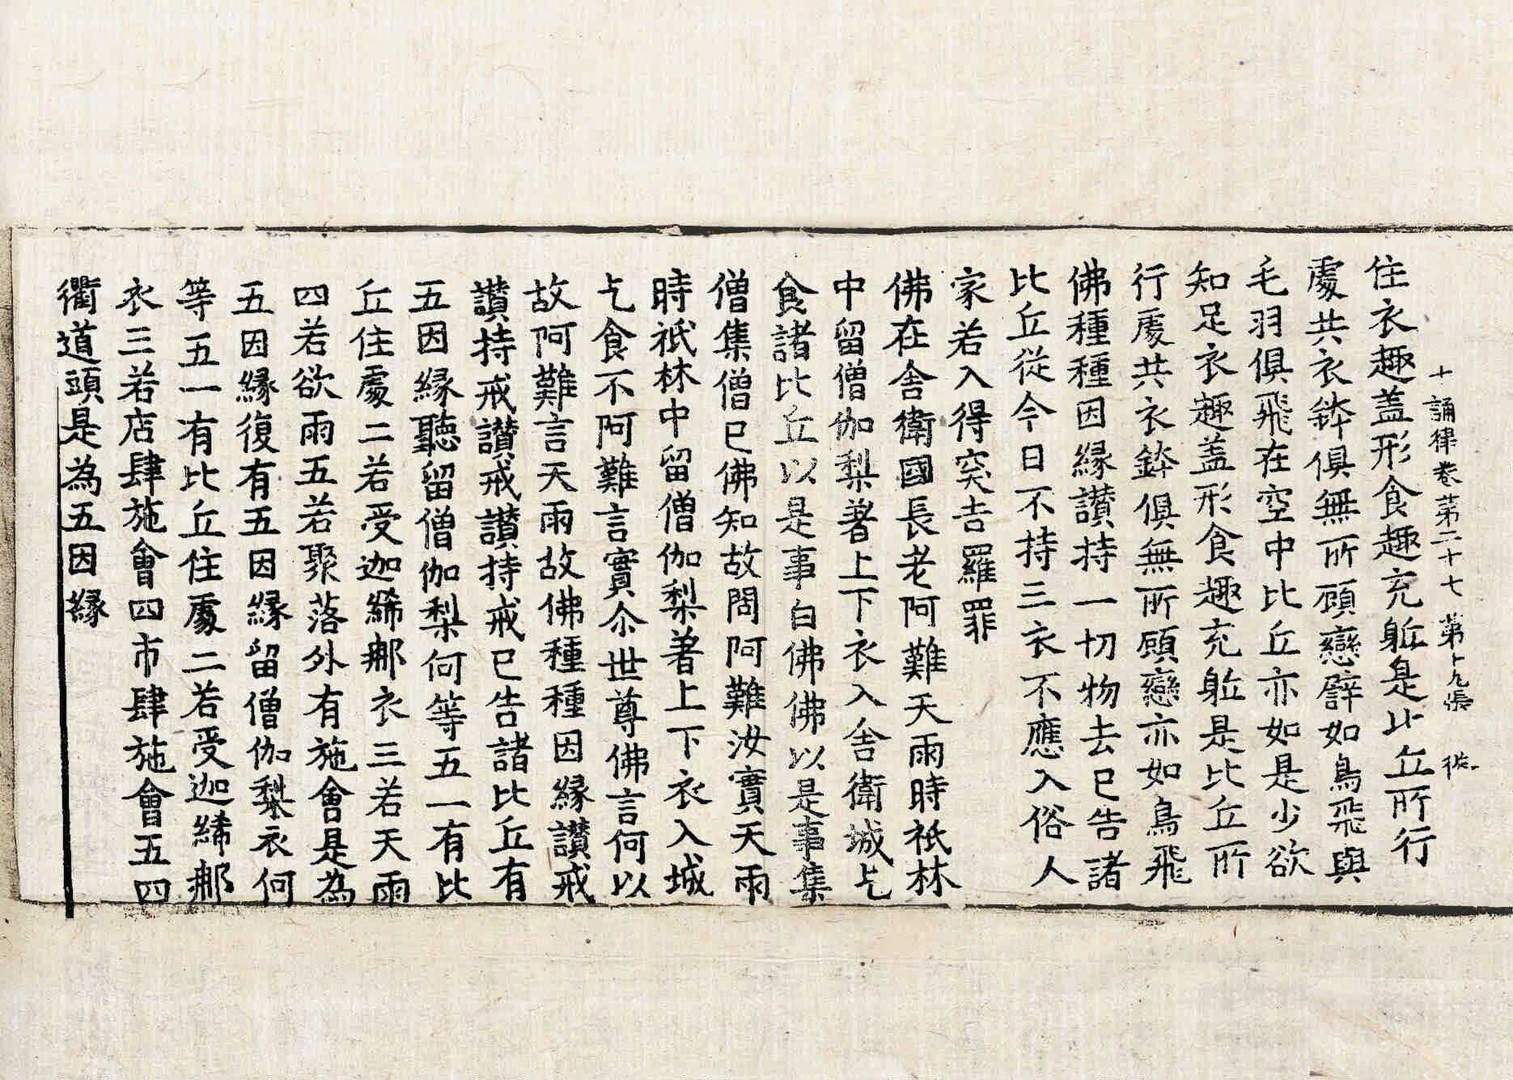 十誦律卷第二十七 第十九張
住衣趣蓋形食趣充軀是比丘所行
處共衣鉢俱無所顧戀譬如鳥飛與
毛羽俱飛在空中比丘亦如是少欲
知足衣趣蓋形食趣充軀是比丘所
行處共衣鉢俱無所顧戀亦如鳥飛
佛種種因緣讃持一切物去已告諸
比丘從今日不持三衣不應入俗人
家若入得突吉羅罪
佛在舍衛國長老阿難天雨時祇林
中留僧伽梨著上下衣入舍衛城乞
食諸比丘以是事白佛佛以是事集
僧集僧已佛知故問阿難汝實天雨
時祇林中留僧伽梨著上下衣入城
乞食不阿難言實尒世尊佛言何以
故阿難言天雨故佛種種因緣讃戒
讃持戒讃戒讃持戒已告諸比丘有
五因緣聽留僧伽梨何等五一有比
丘住處二若受迦絺那衣三若天雨
四若欲雨五若聚落外有施會是為
五因緣復有五因緣留僧伽梨衣何
等五一有比丘住處二若受迦絺那
衣三若店肆施會四市肆施會五四
衢道頭是為五因緣